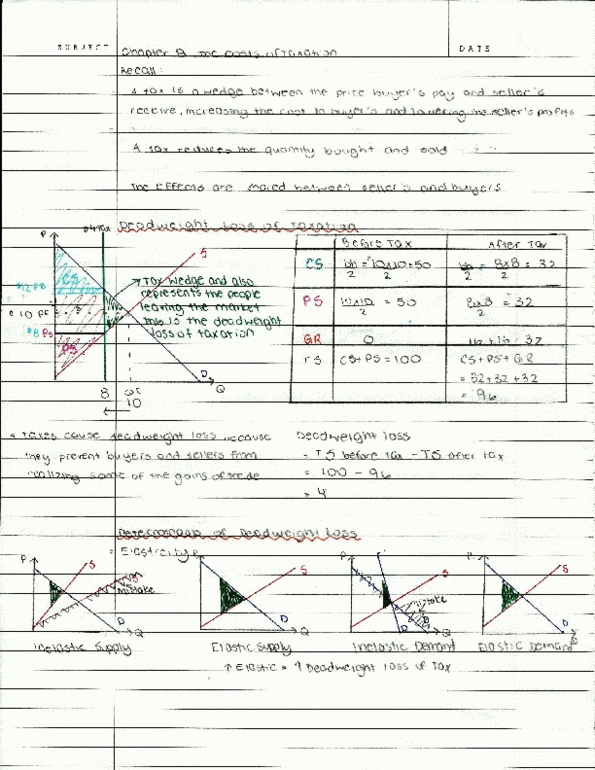 SUBJECT Chapter 8 The costs of taxation DATE
Recall:
A tax is a wedge between the price buyer's pay and seller's
receive, increasing the cost to buyer's and lowering the seller's profits
A tax reduces the quantity bought and sold
The Effects are mixed between seller's and buyers
Deadweight Loss of Taxation
P
S
CS
$12 PB
10 PE
$8 PS
PS
B
Tax wedge and also
represents the people
leaving the market
this is the deadweight
loss of taxation
D
Q
8
10
Before Tax After Tax
CS bh/2 = 10x10/2 = 50 bh/2 = 8x8/2 = 32
PS 10x10/2 = 50 8x8/2 = 32
GR 0 16+16 = 32
TS CS+PS = 100 CS+PS+GR
= 32+32+32
= 96
Taxes cause deadweight loss because
they prevent buyers and sellers from
realizing some of the gains of trade
Deadweight loss
= TS before tax - TS after tax
= 100 - 96
= 4
Determinants of Deadweight loss
= Elasticity
P S S mistake D Q
P S D Q
P S mistake D D Q
P S D
Inelastic Supply Elastic Supply Inelastic Demand Elastic Demand
↑ Elastic = ↑ Deadweight loss of Tax